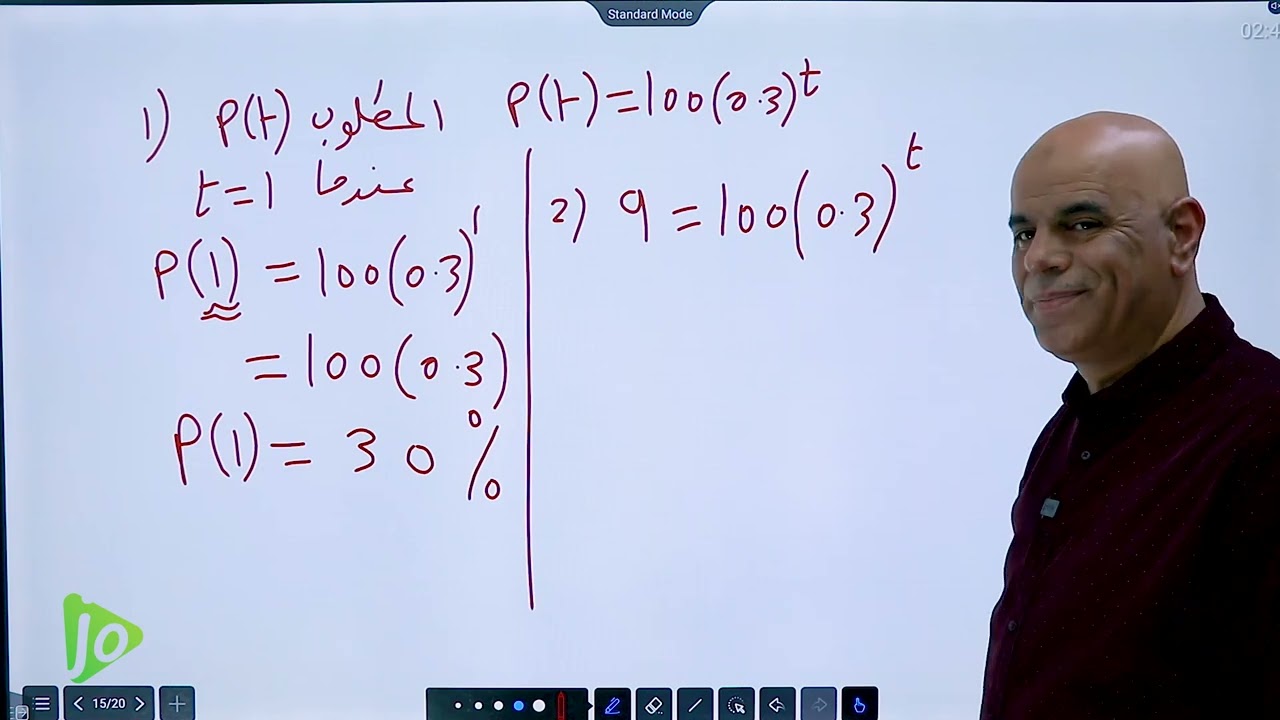 Standard Mode
02:4
1) P(t) المطلوب
t=1 عندما
P(1) = 100(0.3)¹
= 100(0.3)
P(1) = 30%
P(t) = 100(0.3)ᵗ
2) 9 = 100(0.3)ᵗ
Jo
15/20